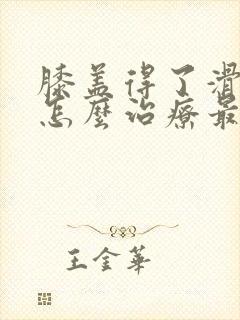 膝盖得了滑
怎麼治療最
王金華